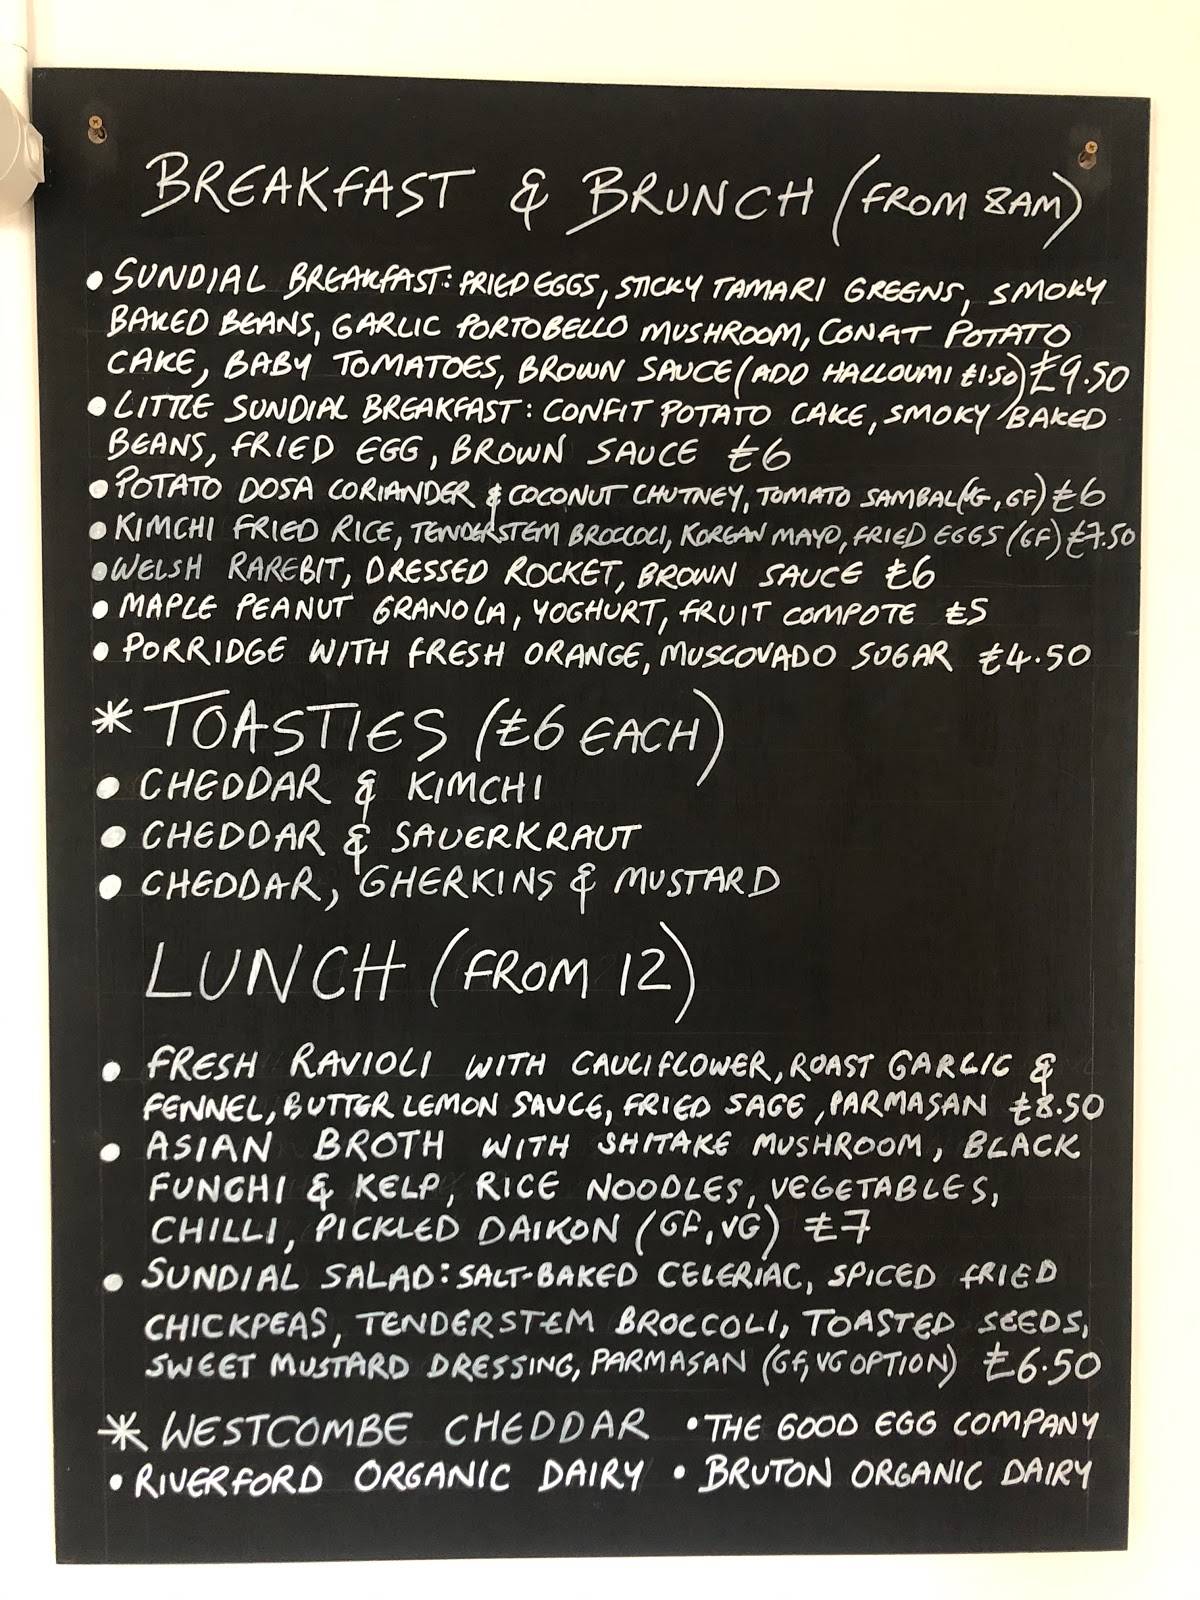 BREAKFAST & BRUNCH (FROM 8AM)
• SUNDIAL BREAKFAST: FRIED EGGS, STICKY TAMARI GREENS, SMOKY
BAKED BEANS, GARLIC PORTOBELLO MUSHROOM, CONFIT POTATO
CAKE, BABY TOMATOES, BROWN SAUCE (ADD HALLOUMI £1.50) £9.50
• LITTLE SUNDIAL BREAKFAST: CONFIT POTATO CAKE, SMOKY BAKED
BEANS, FRIED EGG, BROWN SAUCE £6
• POTATO DOSA CORIANDER & COCONUT CHUTNEY, TOMATO SAMBAL (VG, GF) £6
• KIMCHI FRIED RICE, TENDERSTEM BROCCOLI, KOREAN MAYO, FRIED EGGS (GF) £7.50
• WELSH RAREBIT, DRESSED ROCKET, BROWN SAUCE £6
• MAPLE PEANUT GRANOLA, YOGHURT, FRUIT COMPOTE £5
• PORRIDGE WITH FRESH ORANGE, MUSCOVADO SUGAR £4.50
* TOASTIES (£6 EACH)
• CHEDDAR & KIMCHI
• CHEDDAR & SAUERKRAUT
• CHEDDAR, GHERKINS & MUSTARD
LUNCH (FROM 12)
• FRESH RAVIOLI WITH CAULIFLOWER, ROAST GARLIC &
FENNEL, BUTTER LEMON SAUCE, FRIED SAGE, PARMASAN £8.50
• ASIAN BROTH WITH SHITAKE MUSHROOM, BLACK
FUNGHI & KELP, RICE NOODLES, VEGETABLES,
CHILLI, PICKLED DAIKON (GF, VG) £7
• SUNDIAL SALAD: SALT-BAKED CELERIAC, SPICED FRIED
CHICKPEAS, TENDERSTEM BROCCOLI, TOASTED SEEDS,
SWEET MUSTARD DRESSING, PARMASAN (GF, VG OPTION) £6.50
* WESTCOMBE CHEDDAR • THE GOOD EGG COMPANY
• RIVERFORD ORGANIC DAIRY • BRUTON ORGANIC DAIRY